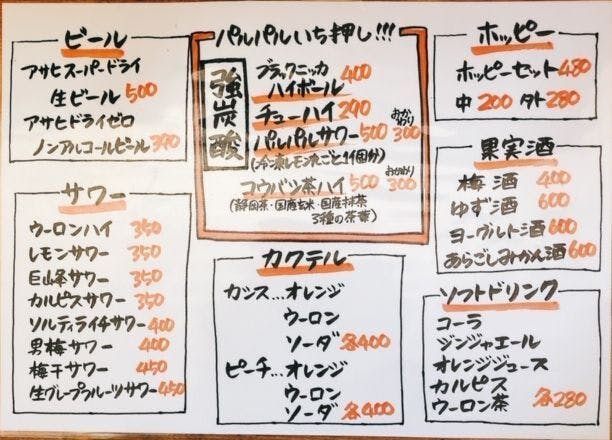 ビール
アサヒスーパードライ
生ビール 500
アサヒドライゼロ
ノンアルコールビール 390
サワー
ウーロンハイ 350
レモンサワー 350
巨峰サワー 350
カルピスサワー 350
ソルティライチサワー 400
男梅サワー 400
梅干サワー 450
生グレープフルーツサワー 450
パルパルいち押し!!!
強炭酸
ブラックニッカ
ハイボール 400
チューハイ 290
パルパルサワー 500 おかわり 300
(冷凍レモンたごと1個分)
コウバツ茶ハイ 500 おかわり 300
(静岡茶・国産玄米・国産抹茶
3種の茶葉)
カクテル
カシス…オレンジ
ウーロン
ソーダ 各400
ピーチ…オレンジ
ウーロン
ソーダ 各400
ホッピー
ホッピーセット 480
中 200 外 280
果実酒
梅酒 400
ゆず酒 600
ヨーグルト酒 600
あらごしみかん酒 600
ソフトドリンク
コーラ
ジンジャエール
オレンジジュース
カルピス
ウーロン茶 各280